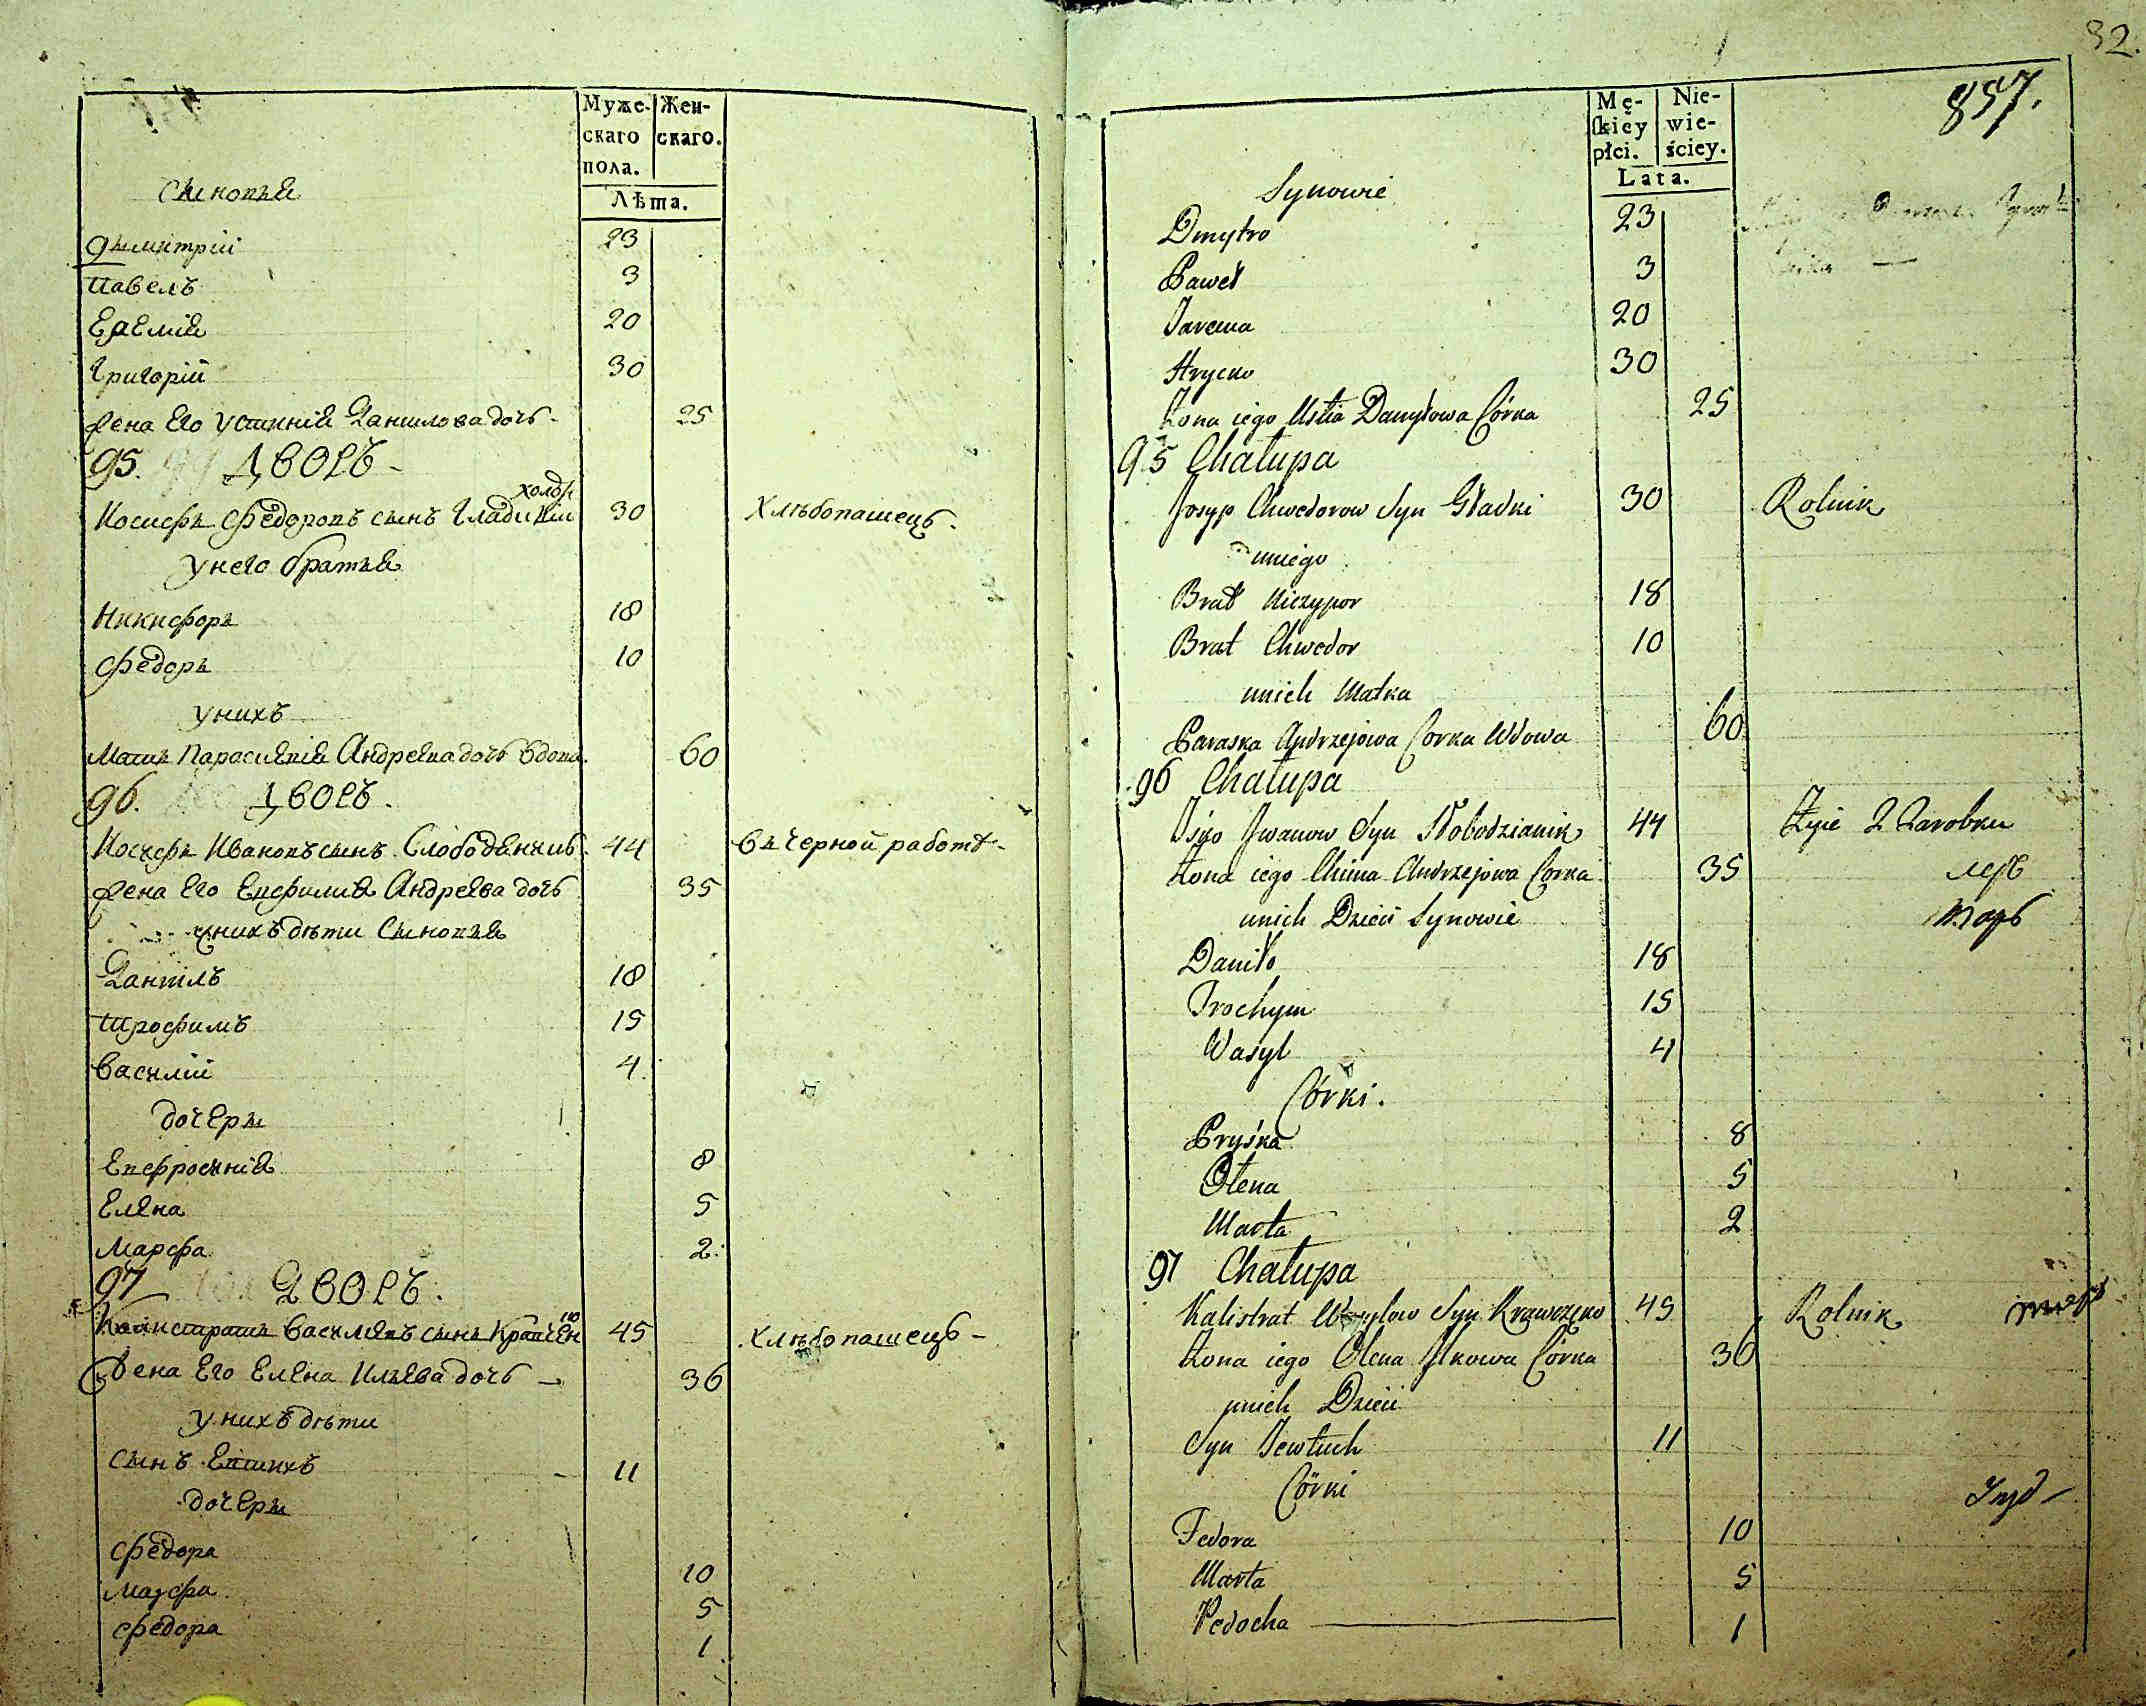 Муже-
скаго
пола.
Жен-
скаго.
Лѣта.
Сыновья
Димитрій 23
Павелъ 3
Еремія 20
Григорій 30
Жена Его Устинія Данилова дочь 25
95. Дворъ
холос
Иосифъ Федоровъ сынъ Гладкій 30 Хлѣбопашецъ.
у него братья
Никифоръ 18
Федоръ 10
у нихъ
Мать Параскевія Андреева дочь вдова 60
96. Дворъ.
Иосифъ Ивановъ сынъ Слободяникъ 44 въ черной работѣ
Жена Его Евфимия Андреева дочь 35
у нихъ дѣти Сыновья
Данилъ 18
Трофимъ 15
Василій 4
дочери
Евфросинія 8
Елена 5
Марфа 2.
97 Дворъ.
Калистратъ Василевъ сынъ Кравченко 45 Хлѣбопашецъ
Жена Его Елена Ильева дочь 36
у нихъ дѣти
сынъ Евтихъ 11
дочери
Федора 10
Марфа 5
Федора 1
32.
857.
Mę-
skiey
płci.
Nie-
wie-
ściey.
Lata.
Synowie
Dmytro 23
Paweł 3
Jarema 20
Hrycko 30
Żona iego Ustia Danyłowa Córka 25
95 Chałupa
Josyp Chwedorow Syn Gładki 30 Rolnik
u niego
Brat Niczypor 18
Brat Chwedor 10
u nich Matka
Paraska Andrzejowa Corka Wdowa 60
96 Chałupa
Iśko Iwanow Syn Słobodzianik 44 Żyie z Zarobku
Żona iego Chima Andrzejowa Corka 35
u nich Dzieci Synowie
Daniło 18
Trochym 15
Wasyl 4
Córki.
Pryśka 8
Ołena 5
Marta 2
97 Chałupa
Kalistrat Wasylow Syn Krawczęko 45 Rolnik
Żona iego Olena Ilkowa Córka 36
u nich Dzieci
Syn Jewtuch 11
Córki
Fedora 10
Marta 5
Fedocha 1